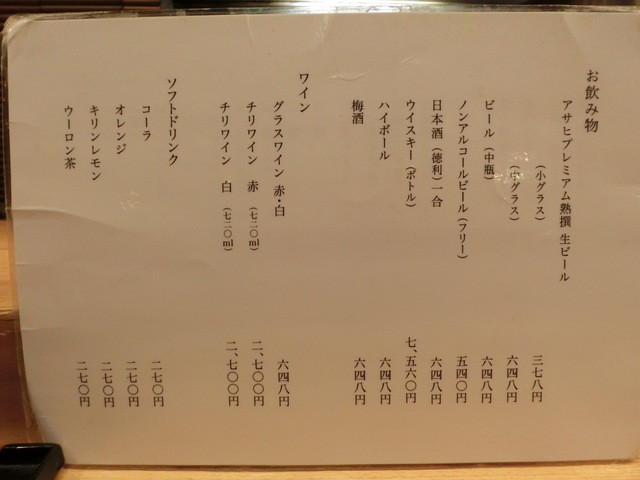 お飲み物
アサヒプレミアム熟撰 生ビール
（小グラス） 三七八円
（中グラス） 六四八円
ビール（中瓶） 六四八円
ノンアルコールビール（フリー） 五四〇円
日本酒（徳利）一合 六四八円
ウイスキー（ボトル） 七、五六〇円
ハイボール 六四八円
梅酒 六四八円
ワイン
グラスワイン 赤・白 六四八円
チリワイン 赤 （七二〇ml） 二、七〇〇円
チリワイン 白 （七二〇ml） 二、七〇〇円
ソフトドリンク
コーラ 二七〇円
オレンジ 二七〇円
キリンレモン 二七〇円
ウーロン茶 二七〇円